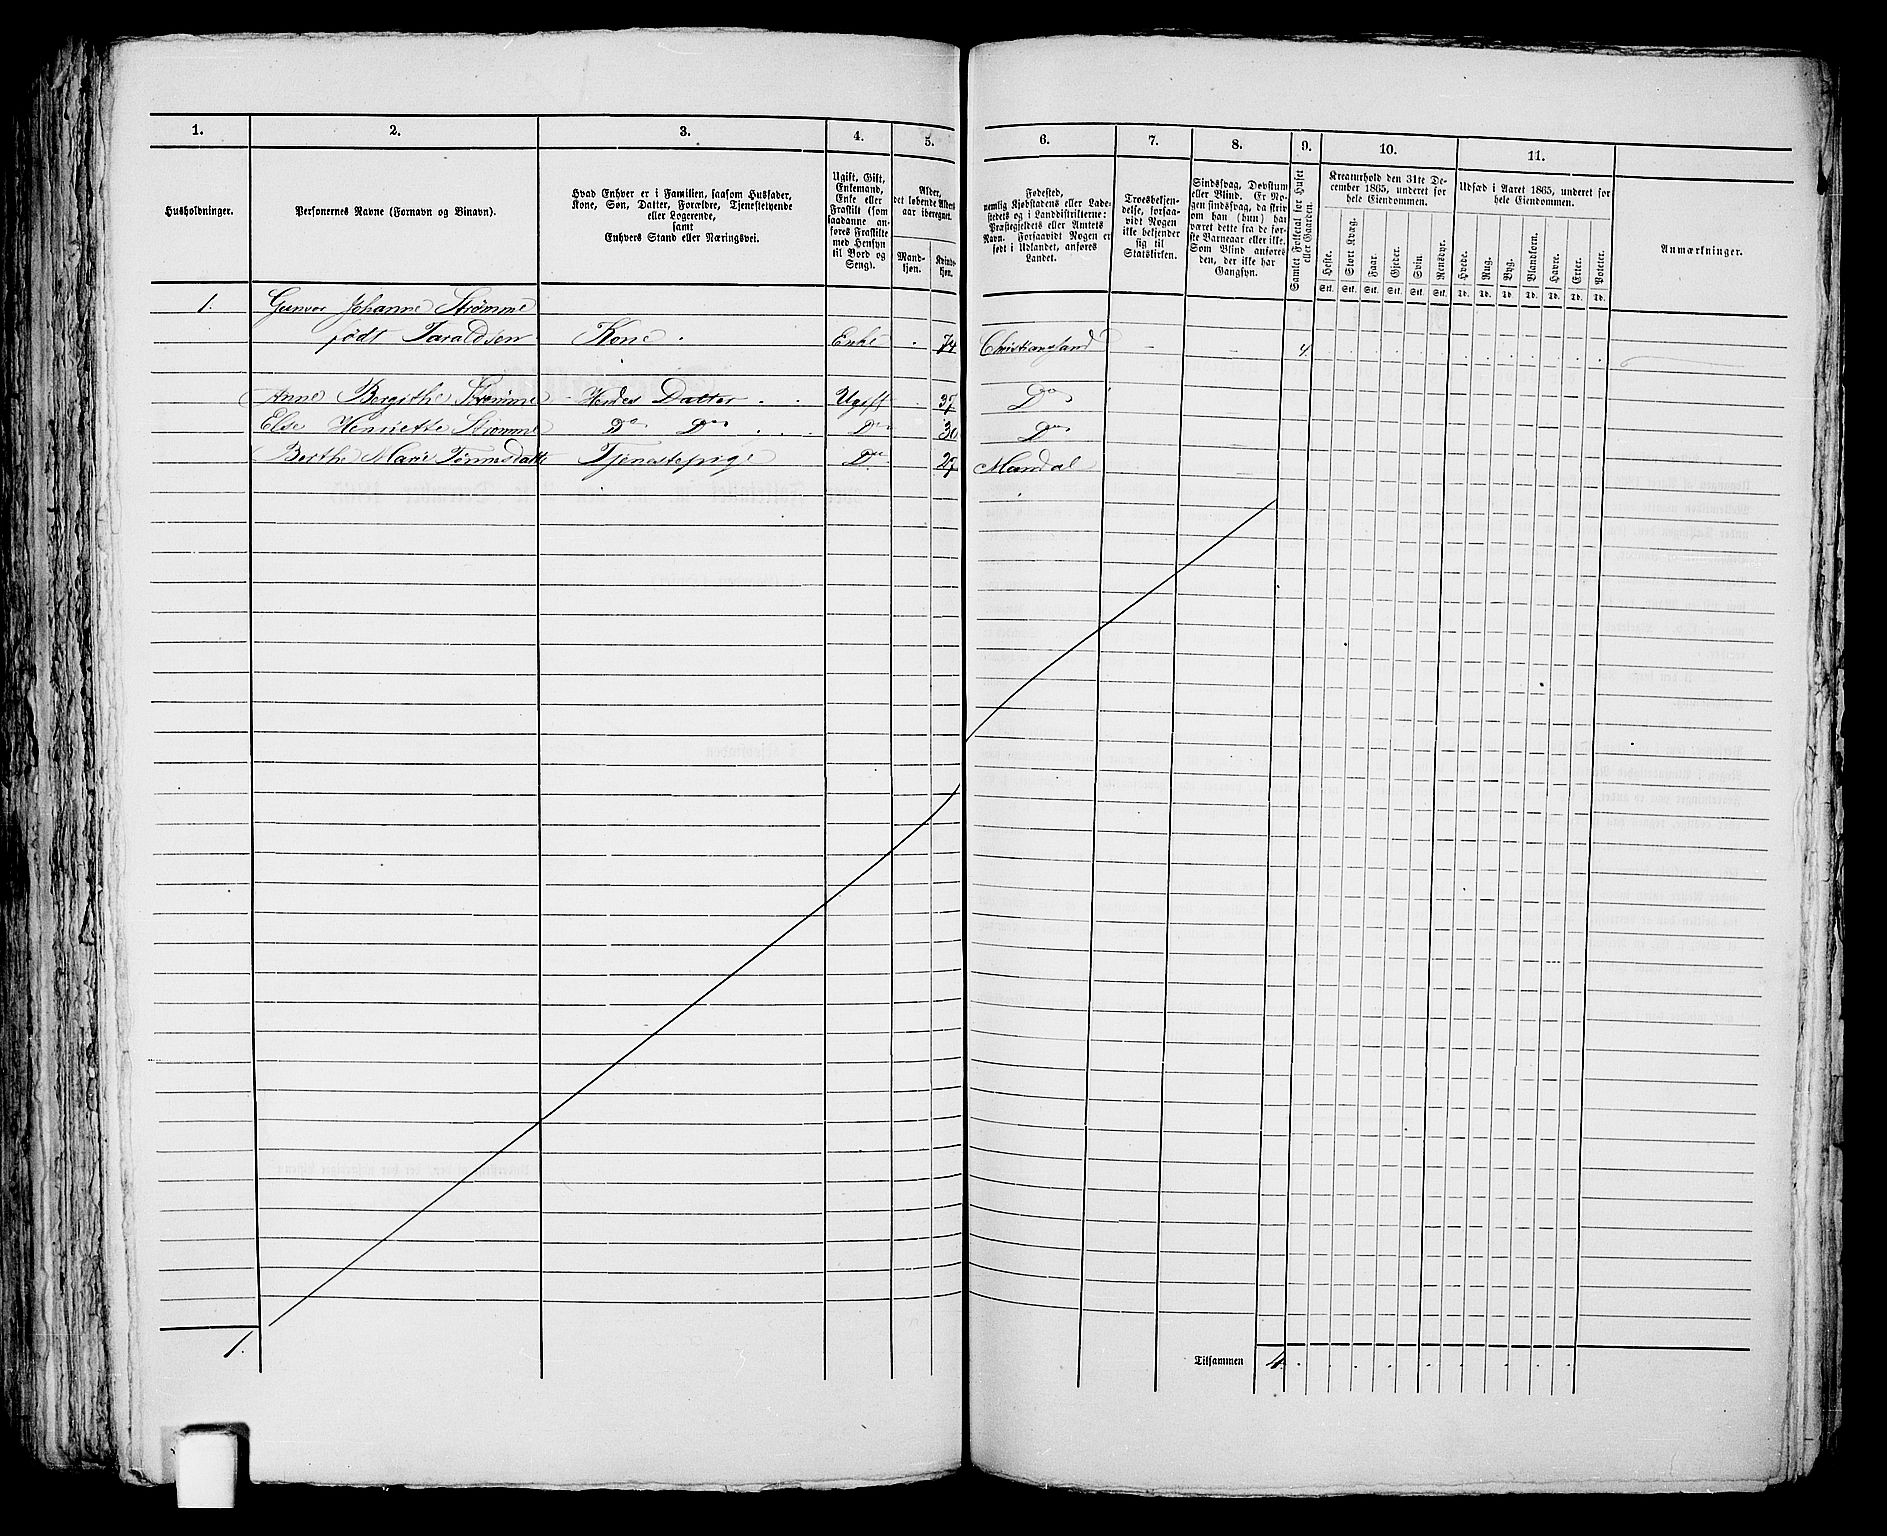 1. 2. 3. 4. 5. 6. 7. 8. 9. 10. 11.
Husholdninger.
Personernes Navne (Fornavn og Binavn).
Hvad Enhver er i Familien, saasom Husfader,
Kone, Søn, Datter, Forældre, Tjenestetyende
eller Logerende,
samt
Enhvers Stand eller Næringsvei.
Ugift, Gift,
Enkemand,
Enke eller
Fraskilt (som
saadanne an-
føres Fraskilte
med Hensyn
til Bord og
Seng).
Alder,
det løbende Alders-
aar iberegnet.
Mand-
kjøn.
Kvinde-
kjøn.
Fødested,
nemlig Kjøbstadens eller Lade-
stedets og i Landdistrikterne:
Præstegjeldets eller Amtets
Navn. Forsaavidt Nogen er
født i Udlandet, anføres
Landet.
Troesbekjen-
delse, forsaa-
vidt Nogen
ikke bekjender
sig til
Statskirken.
Sindssvag, Døvstum
eller Blind. Er No-
gen sindssvag, da skriv
om han (hun) har
været dette fra de før-
ste Barneaar eller ikke.
Som Blind anføres
den, der ikke har
Gangsyn.
Samlet Folketal for Huset
eller Gaarden.
Kreaturhold den 31te De-
cember 1865, underet for
hele Eiendommen.
Heste. Stort Kvæg. Faar. Gjeder. Svin. Rensdyr.
Stk. Stk. Stk. Stk. Stk. Stk.
Udsæd i Aaret 1865, underet for
hele Eiendommen.
Hvede. Rug. Byg. Blandkorn. Havre. Erter. Poteter.
Td. Td. Td. Td. Td. Td. Td.
Anmærkninger.
1. Gunvor Johanne Strømme
født Taraldsen Kone Enke 74 Christiansand 4
Anne Bergithe Strømme Hendes Datter Ugift 37 Do
Else Henriette Strømme Do Do Do 30 Do
Berthe Marie Tønnesdatter Tjenestepige Do 27 Mandal
1. Tilsammen 4